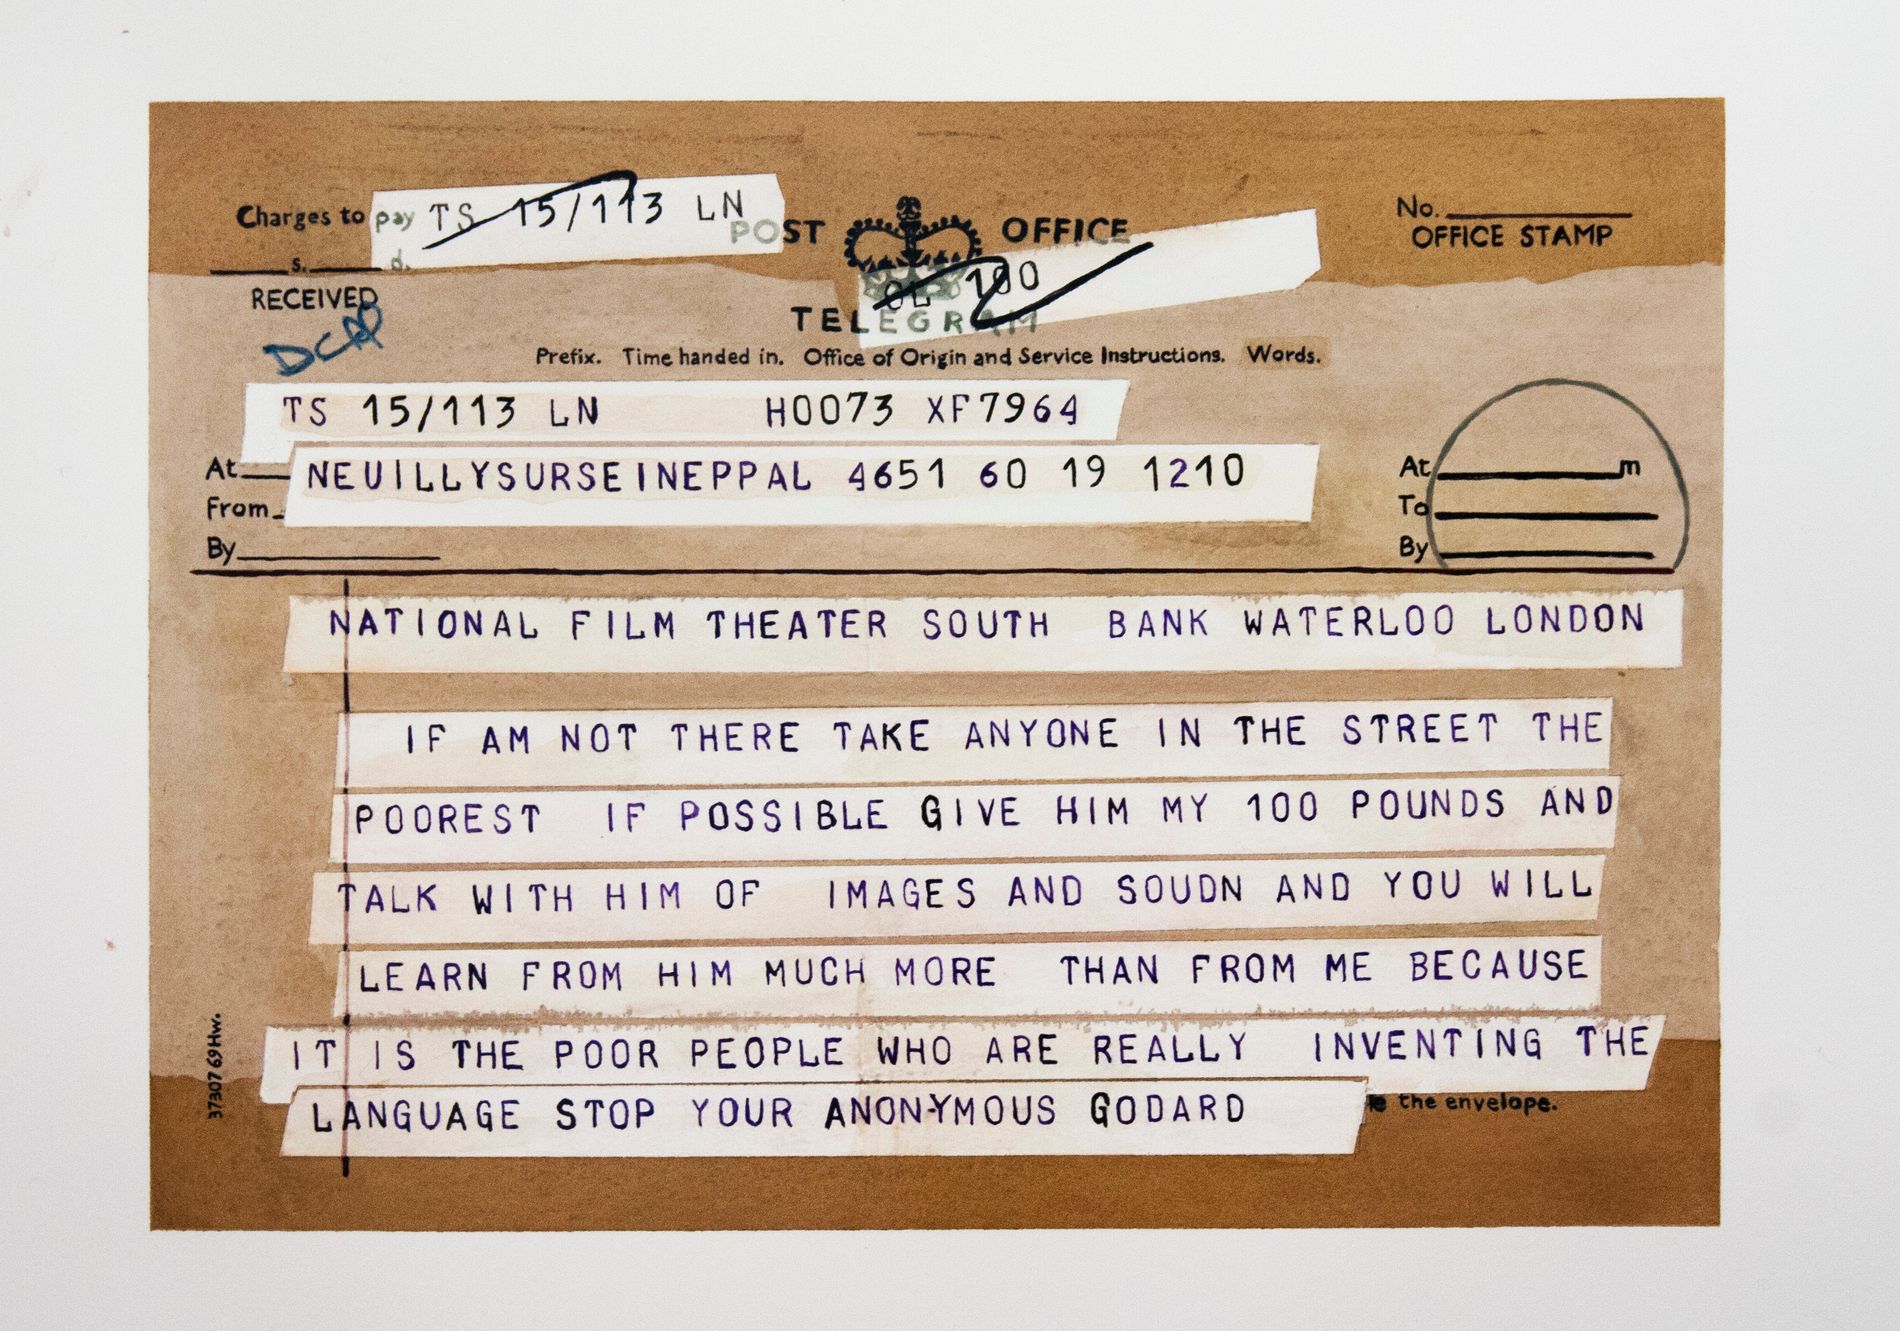 Charges to pay TS 15/113 LN
POST OFFICE
No.
OFFICE STAMP
s. d.
RECEIVED
OL 100
TELEGRAM
Prefix. Time handed in. Office of Origin and Service Instructions. Words.
TS 15/113 LN H0073 XF7964
At NEUILLYSURSEINEPPAL 4651 60 19 1210
From
By
At m
To
By
NATIONAL FILM THEATER SOUTH BANK WATERLOO LONDON
IF AM NOT THERE TAKE ANYONE IN THE STREET THE
POOREST IF POSSIBLE GIVE HIM MY 100 POUNDS AND
TALK WITH HIM OF IMAGES AND SOUDN AND YOU WILL
LEARN FROM HIM MUCH MORE THAN FROM ME BECAUSE
IT IS THE POOR PEOPLE WHO ARE REALLY INVENTING THE
LANGUAGE STOP YOUR ANONYMOUS GODARD
the envelope.
37307 69Hw.